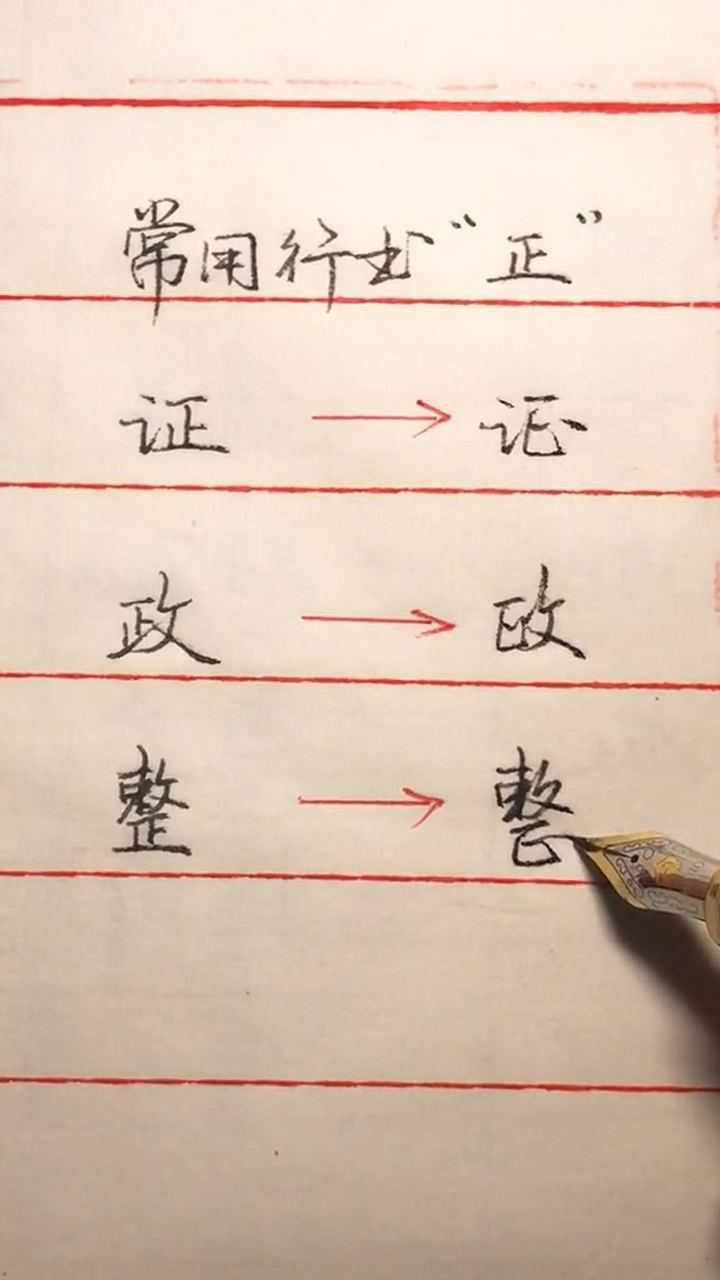 常用行书“正”
证 → 证
政 → 政
整 → 整